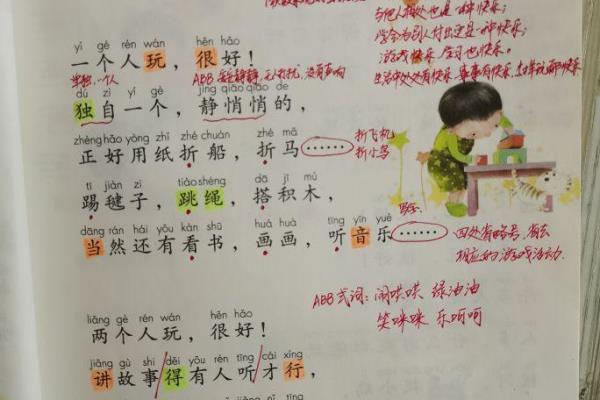 与他人相处也是一种快乐;
学会为别人付出这是一种快乐;
游戏快乐,学习也快乐。
yí gè rén wán hěn hǎo
一个人玩,很好!
单独,一个人
ABB
生活中处处有快乐,事事有快乐
dú zì yí gè jìng qiāo qiāo de
独自一个,静悄悄的,
zhèng hǎo yòng zhǐ zhé chuán zhé mǎ
正好用纸折船,折马……
折飞机
折小鸟
tī jiàn zi tiào shéng dā jī mù
踢毽子,跳绳,搭积木,
dāng rán hái yǒu kàn shū huà huà tīng yīn yuè
当然还有看书,画画,听音乐……
四处省略号,
相应的游戏活动.
ABB式词:闹哄哄 绿油油
笑咪咪 乐呵呵
liǎng gè rén wán hěn hǎo
两个人玩,很好!
jiǎng gù shi děi yǒu rén tīng cái xíng
讲故事得有人听才行,